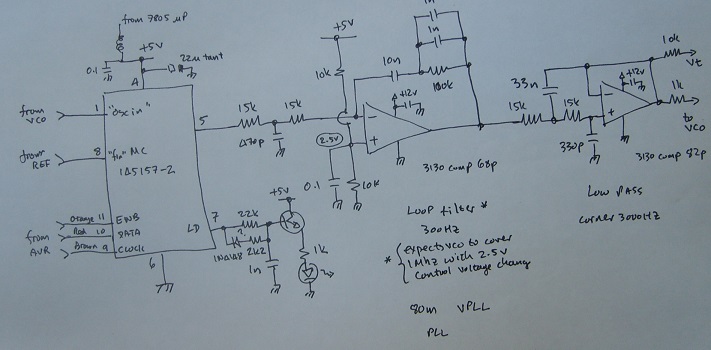 from 7805 µP
+5V
0.1
22µ tant
4
from VCO
1
"oscin"
5
from REF
8
"fin" MC
145157-2
from AVR
Orange 11
ENB
Red 10
DATA
Brown 9
CLOCK
6
LD
7
15k
15k
470p
22k
1N4148
2k2
1n
+5V
1k
+5V
10k
2.5V
0.1
10k
10n
1n
1n
180k
+12v
3130 comp 68p
Loop filter *
300Hz
* expects VCO to cover
1Mhz with 2.5v
control voltage change
80m VPLL
PLL
15k
33n
15k
330p
+12v
3130 comp 82p
10k
Vt
1k
to VCO
Low PASS
corner 3000Hz